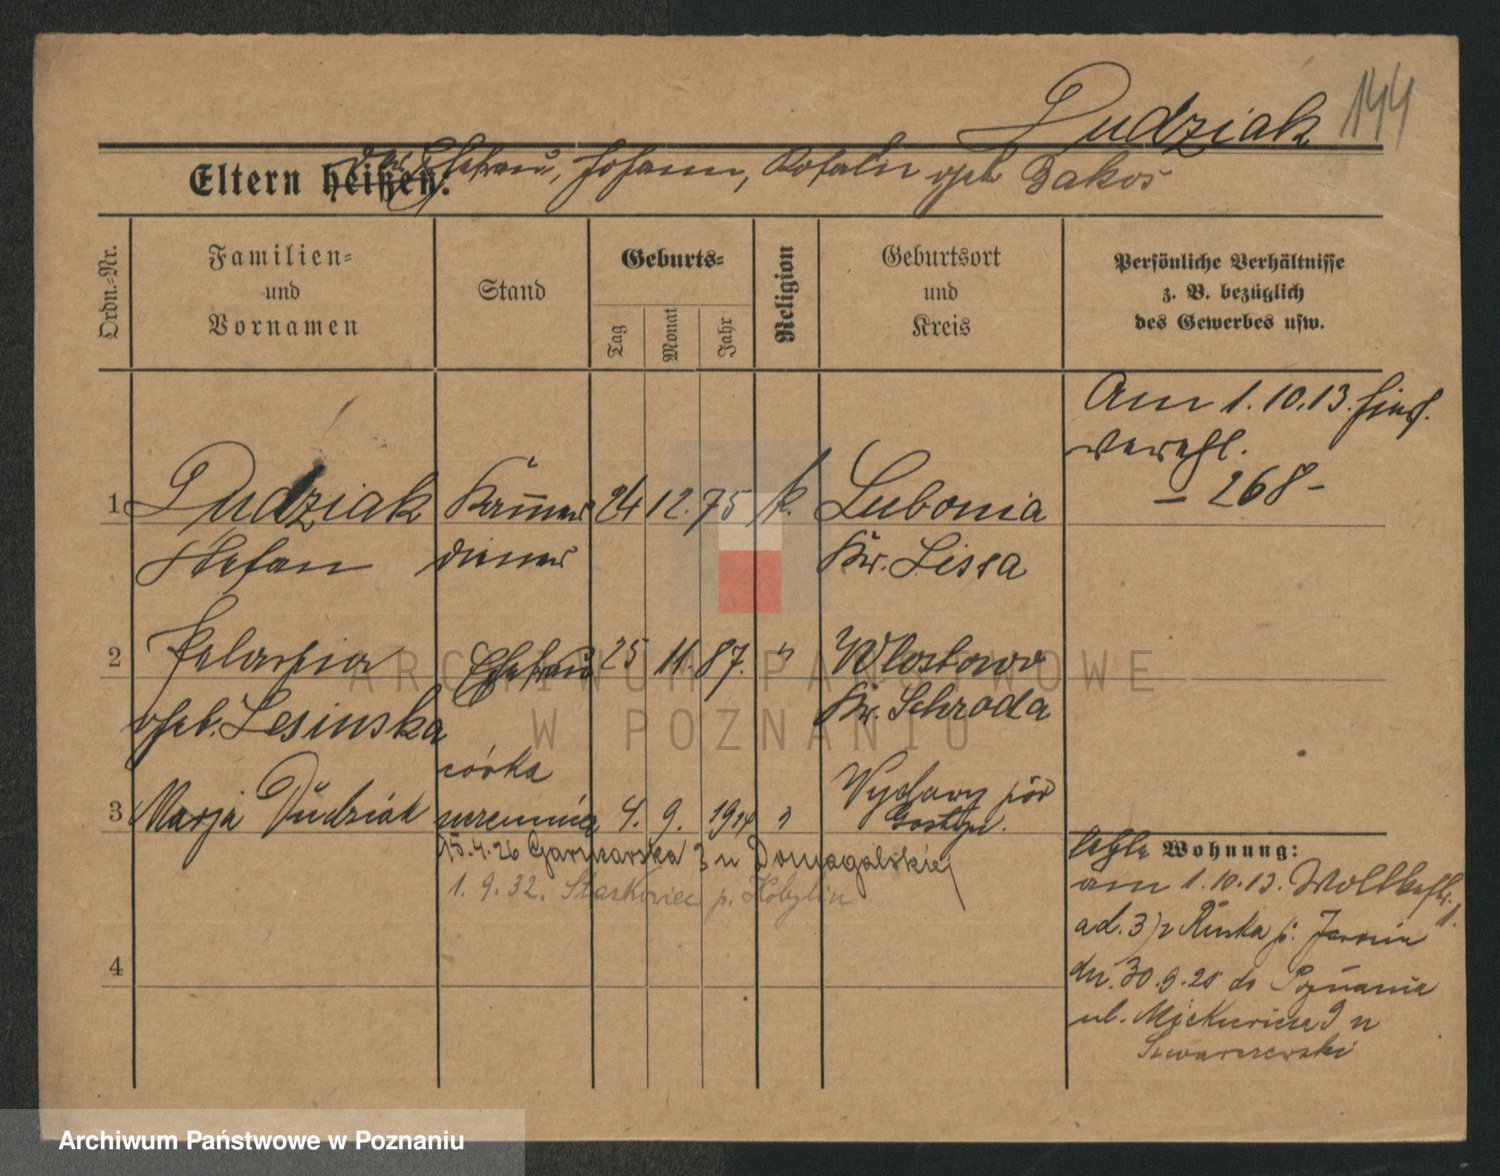 Dudziak 144
Eltern heißen:
der Ehefrau, Johann, Rosalie geb Bakos
Ordn.-Nr.
Familien-
und
Vornamen
Stand
Geburts-
Tag
Monat
Jahr
Religion
Geburtsort
und
Kreis
Persönliche Verhältnisse
z. B. bezüglich
des Gewerbes usw.
Am 1.10.13. hies.
verehl.
- 268 -
1 Dudziak 24 12. 75 k. Lubonia
Stefan diener Kr. Lissa
2 Pelagia Ehefrau 25 11. 87. " Wlostowo
geb. Lesinska Kr. Schroda
córka
3 Marja Dudziak 4. 9. 1914 " Gostyn.
15.4.26 Garncarska 3 u Domagalskiej
1.9.32. Starkowiec p. Kobylin
4
letzte Wohnung:
am 1.10.13.
ad. 3) z Ruska p.
dn. 30.9.20 do Poznania
ul. Mickiewicza 9 u
ARCHIWUM PAŃSTWOWE
W POZNANIU
Archiwum Państwowe w Poznaniu